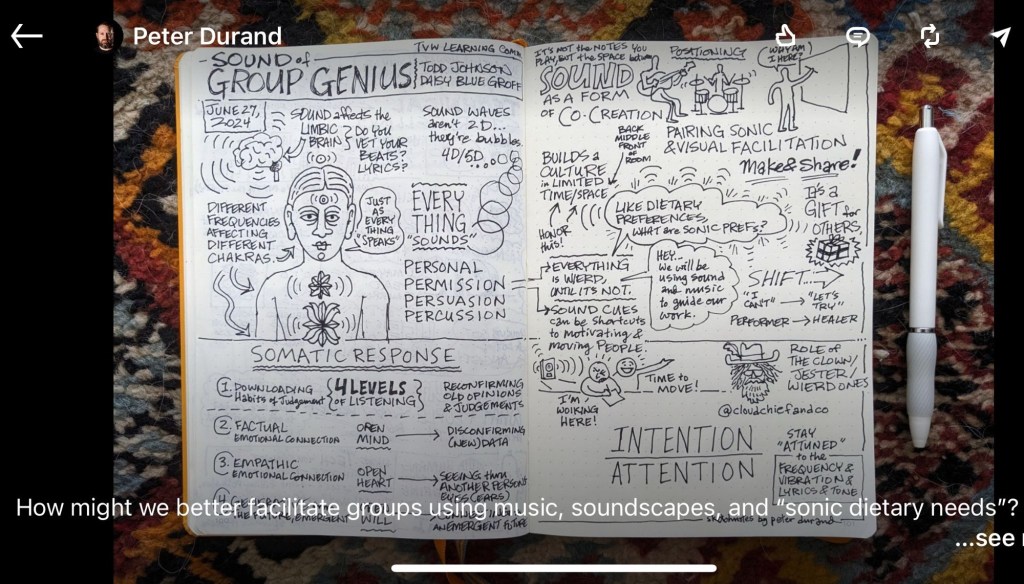 Peter Durand
SOUND of
GROUP GENIUS
TVW LEARNING
TODD JOHNSON
DAISY BLUE GROFF
JUNE 27,
2024
SOUND affects the
LIMBIC
BRAIN
DO YOU
VET YOUR
BEATS?
LYRICS?
SOUND WAVES
aren't 2D...
they're bubbles.
4D/5D
DIFFERENT
FREQUENCIES
AFFECTING
DIFFERENT
CHAKRAS.
JUST
AS
EVERY
THING
"SPEAKS"
EVERY
THING
"SOUNDS"
PERSONAL
PERMISSION
PERSUASION
PERCUSSION
SOMATIC RESPONSE
1. DOWNLOADING
Habits of Judgement
4 LEVELS
OF LISTENING
RECONFIRMING
OLD OPINIONS
& JUDGEMENTS
2. FACTUAL
EMOTIONAL CONNECTION
OPEN
MIND
DISCONFIRMING
(NEW) DATA
3. EMPATHIC
EMOTIONAL CONNECTION
OPEN
HEART
SEEING thru
ANOTHER PERSON
EYES (EARS)
4.
THE FUTURE, EMERGENT
WILL
AN EMERGENT FUTURE
IT'S NOT the NOTES YOU
PLAY, BUT the SPACE between
SOUND
AS A FORM
OF CO-CREATION
POSITIONING
(WHY AM
I HERE?)
BACK
MIDDLE
FRONT
OF
ROOM
PAIRING SONIC
& VISUAL FACILITATION
Make & Share!
BUILDS a
CULTURE
in LIMITED
TIME/SPACE
HONOR
this!
LIKE DIETARY
PREFERENCES,
WHAT are SONIC PREFS?
IT'S a
GIFT for
OTHERS,
EVERYTHING
is WIERD,
UNTIL IT'S NOT.
HEY...
We will be
using sound
and music
to guide our
work.
SHIFT...
"I
CAN'T"
"LET'S
TRY"
PERFORMER → HEALER
SOUND CUES
can be shortcuts
to motivating &
moving PEOPLE.
TIME to
MOVE!
I'M
WOIKING
HERE!
ROLE of
THE CLOWN/
JESTER/
WIERD ONES
@cloudchiefandco
INTENTION
ATTENTION
STAY
"ATTUNED"
to the
FREQUENCY &
VIBRATION &
LYRICS & TONE
sketchnotes by peter durand
How might we better facilitate groups using music, soundscapes, and “sonic dietary needs”?
...see